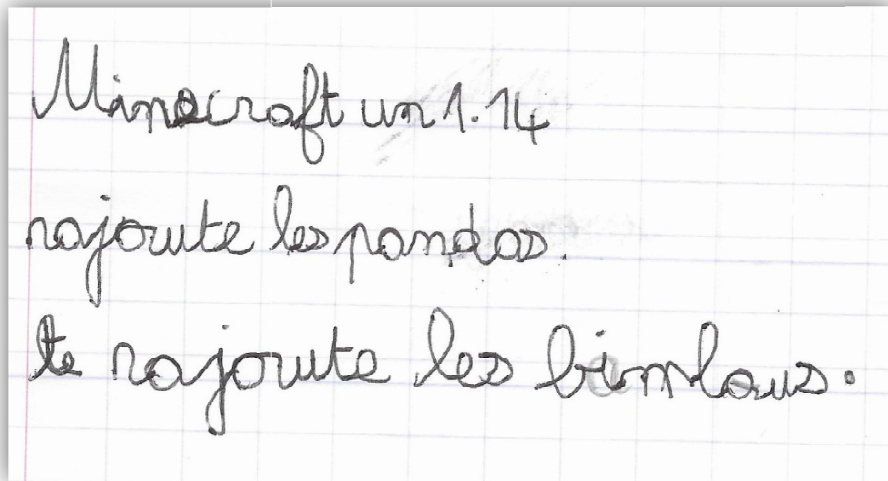 Minecraft un 1.14
rajoute les pandas.
te rajoute les bimlous.